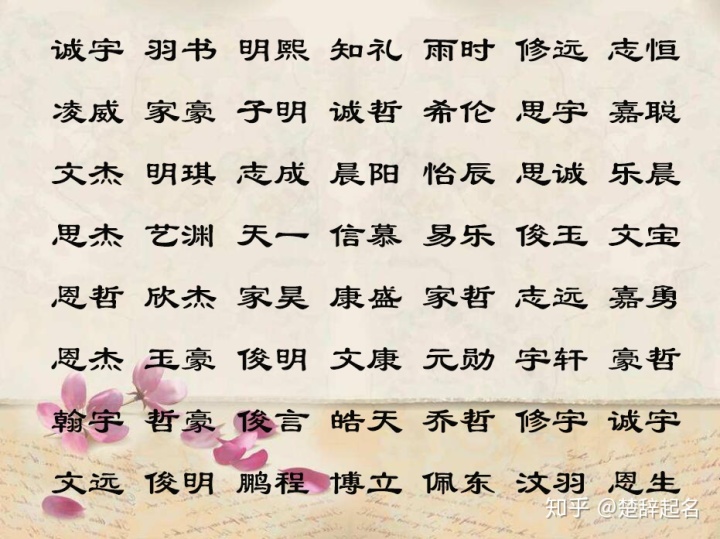 诚宇 羽书 明熙 知礼 雨时 修远 志恒
凌威 家豪 子明 诚哲 希伦 思宇 嘉聪
文杰 明琪 志成 晨阳 怡辰 思诚 乐晨
思杰 艺渊 天一 信慕 易乐 俊玉 文宝
恩哲 欣杰 家昊 康盛 家哲 志远 嘉勇
恩杰 玉豪 俊明 文康 元勋 宇轩 豪哲
翰宇 哲豪 俊言 皓天 乔哲 修宇 诚宇
文远 俊明 鹏程 博立 佩东 汶羽 恩生
知乎 @楚辞起名